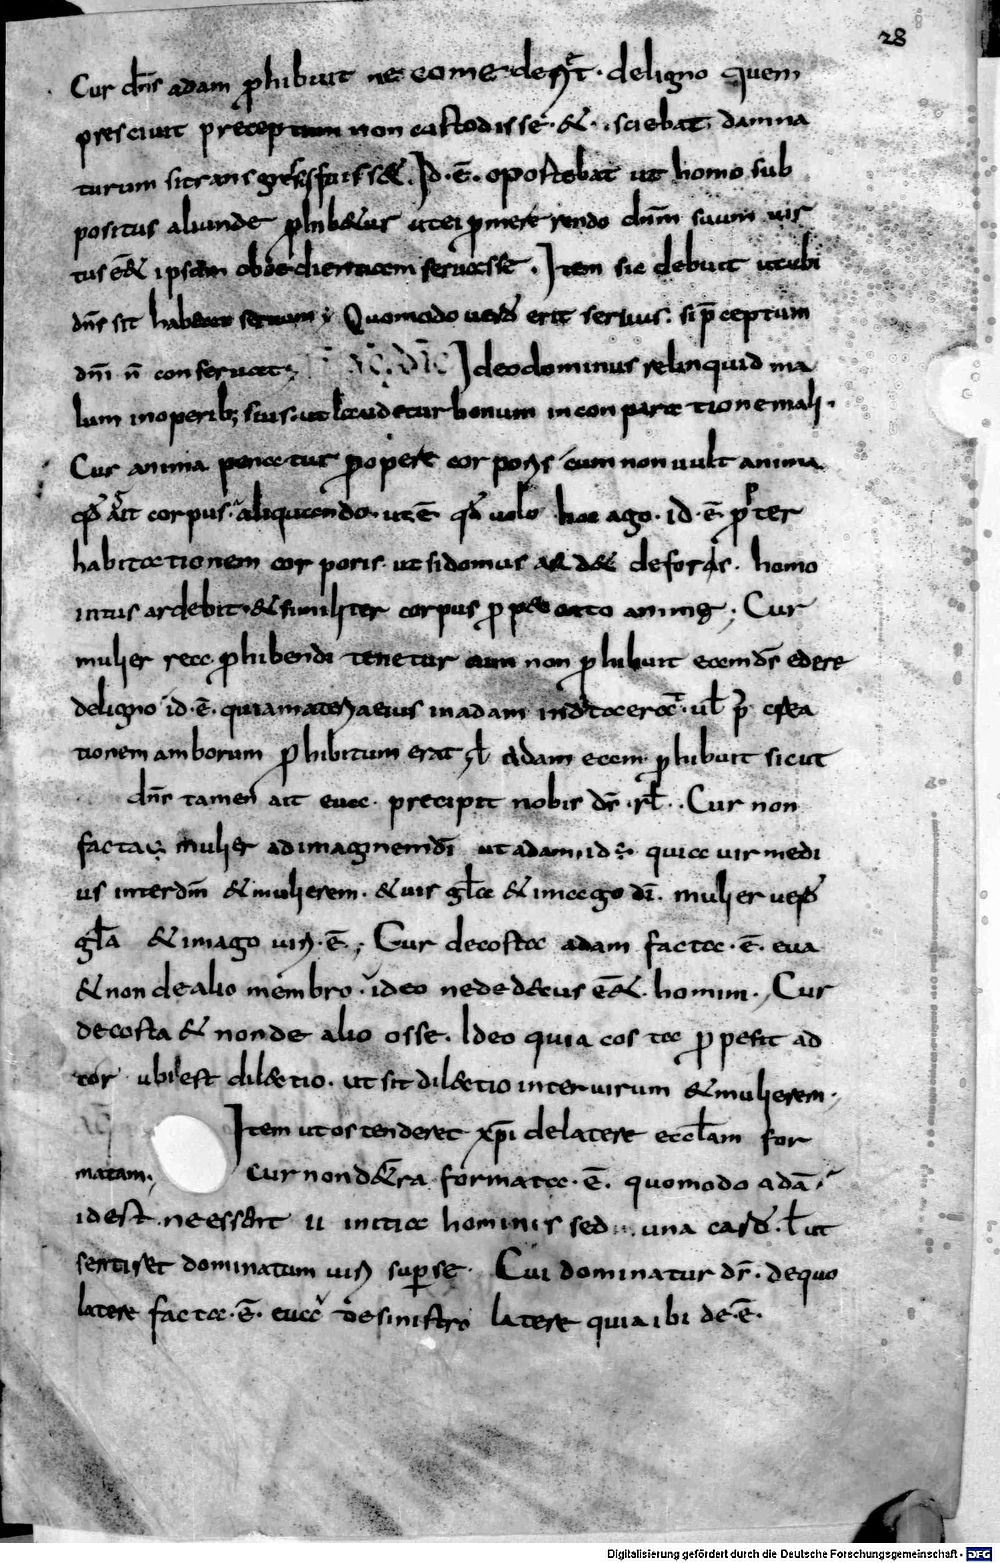 28
Cur dn̄s adam ꝓhibuit ne comederꝫ̄t · deligno quem
presciuit preceptum non custodisse · & · sciebat damna
turum si transgressus fuisset. Id · ē · oportebat ut homo sub
positus aliunde ꝓhiberetur ut ei ꝓmereriendo dn̄m suum uis
tus ē& ipsam oboedientiam seruasse . Item sic debuit ut ubi
dn̄s sit habeat seruum ; Quomodo uero erit seruus : si p̄ceptum
dn̄i n̄ conseruat ; Ideo dominus relinquid ma
lum in operibꝫ suis · ut laudetur bonum in conparatione mali ·
Cur anima penatur ꝓ opere corporis cum non uult anima
qđ ait corpus · aliquando · ut ē qđ uolo hoc ago · id · ē · p̄ter
habitationem corporis · ut si domus ard& deforas · homo
intus ardebit · & similiter corpus ꝓ peccato animę ; Cur
mulier rea ꝓhibendi tenetur cum non ꝓhibuit eam dr̄ edere
deligno id · ē · quia materia eius in adam
tionem amborum ꝓhibitum erat ł Adam eam ꝓhibuit sicut
dn̄s tamen ait eua · precipit nobis dr̄ · rł · Cur non
facta mulier ad imaginem dī ut adam id ÷ quia uir medi
us inter dm̄ & mulierem · & uir gła & imago dī · mulier uero
gła & imago uiri · ē · ; Cur decosta adam facta · ē · eua
& non de alio membro · ideo ne dedecus ē& · homini · , Cur
decosta & non de alio osse · Ideo quia costa ꝓpe sit ad
cor ubi est dilectio · ut sit dilectio inter uirum & mulierem ·,
Item ut ostenderet xp̄i delatere eccłam for
matam ·, Cur non dęterra formata · ē · quomodo adā ·
id est · ne essent ii initia hominis sed una caro · ł ut
sentiret dominatum uiri super se · Cui dominatur dr̄ · de quo
latere facta · ē · eua de sinistro latere quia ibi de · ē ·
Digitalisierung gefördert durch die Deutsche Forschungsgemeinschaft - DFG